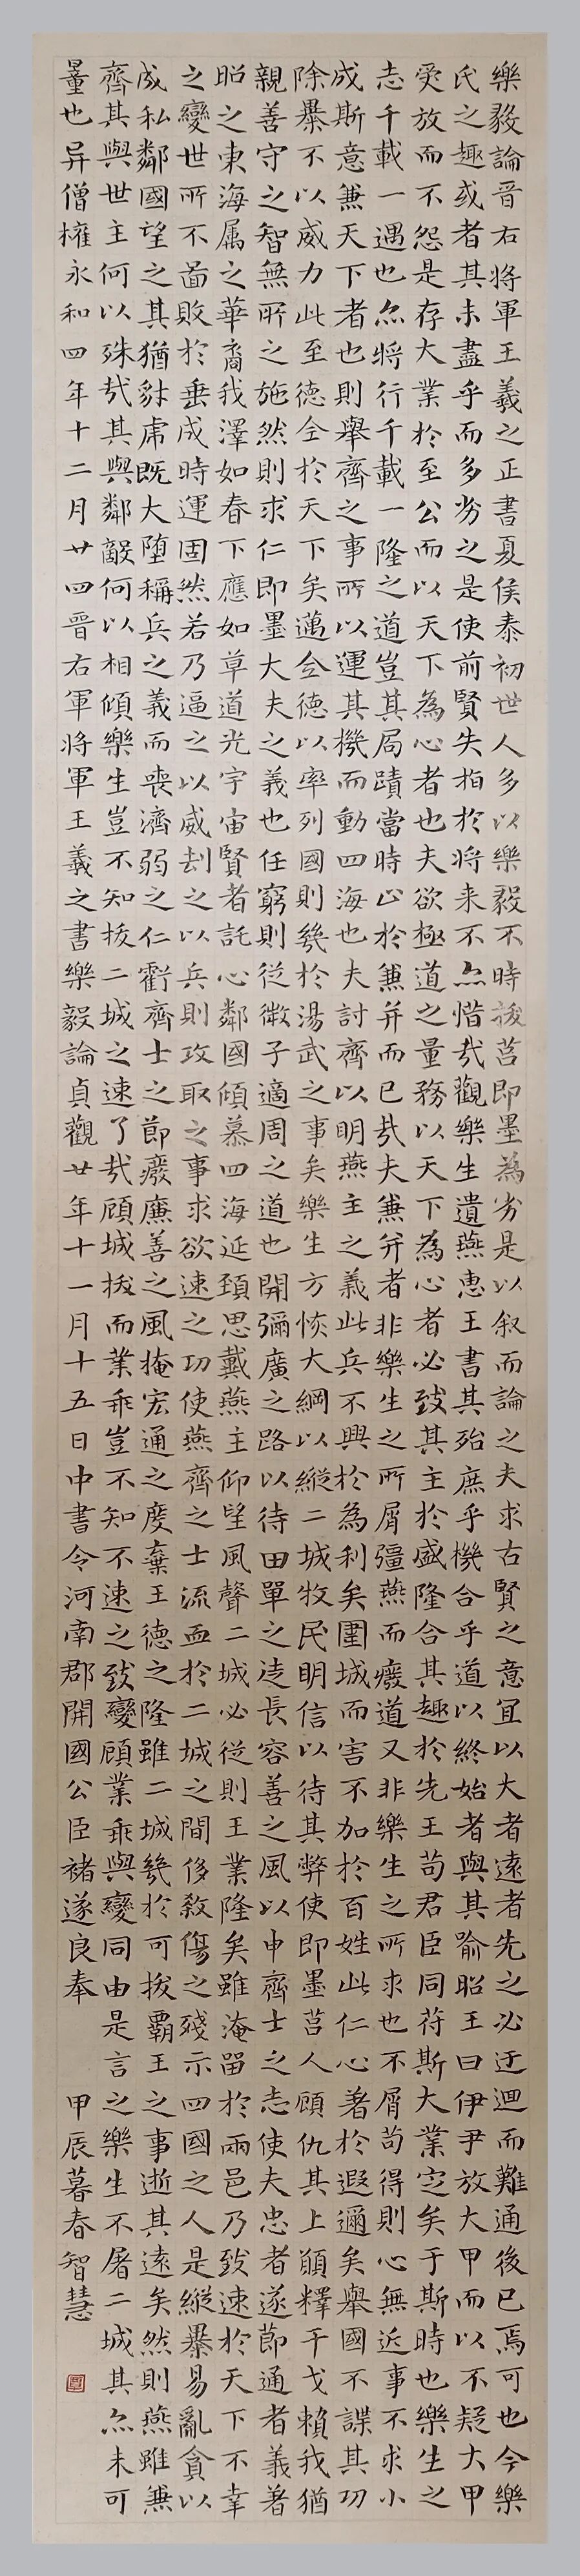 樂毅論晉右將軍王羲之正書夏侯泰初世人多以樂毅不時拔莒即墨為劣是以叙而論之夫求古賢之意宜以大者遠者先之必迂迴而難通後已焉可也今樂
氏之趣或者其未盡乎而多劣之是使前賢失指於將来不亦惜㢤觀樂生遺燕惠王書其殆庶乎機合乎道以終始者與其喻昭王曰伊尹放大甲而以不疑大甲
受放而不怨是存大業於至公而以天下為心者也夫欲極道之量務以天下為心者必致其主於盛隆合其趣於先王苟君臣同苻斯大業定矣于斯時也樂生之
志千載一遇也亦將行千載一隆之道豈其局蹟當時止於兼并而已㢤夫兼并者非樂生之所屑彊燕而廢道又非樂生之所求也不屑苟得則心無近事不求小
成斯意兼天下者也則舉齊之事所以運其機而動四海也夫討齊以明燕主之義此兵不興於為利矣圍城而害不加於百姓此仁心著於遐邇矣舉國不謀其功
除暴不以威力此至德全於天下矣邁全德以率列國則幾於湯武之事矣樂生方恢大綱以縱二城牧民明信以待其弊使即墨莒人顧仇其上願釋干戈賴我猶
親善守之智無所之施然則求仁即墨大夫之義也任窮則從微子適周之道也開彌廣之路以待田單之徒長容善之風以申齊士之志使夫忠者遂節通者義著
昭之東海属之華裔我澤如春下應如草道光宇宙賢者託心鄰國傾慕四海延頚思戴燕主仰望風聲二城必從則王業隆矣雖淹留於兩邑乃致速於天下不幸
之變世所不啚敗於垂成時運固然若乃逼之以威刧之以兵則攻取之事求欲速之功使燕齊之士流血於二城之間侈殺傷之殘示四國之人是縱暴易亂貪以
成私鄰國望之其猶豺虎既大墮稱兵之義而喪濟弱之仁虧齊士之節廢廉善之風掩宏通之度棄王德之隆雖二城幾於可拔霸王之事逝其遠矣然則燕雖兼
齊其與世主何以殊㢤其與鄰敵何以相傾樂生豈不知拔二城之速了㢤顧城拔而業乖豈不知不速之致變顧業乖與變同由是言之樂生不屠二城其亦未可
量也异僧權永和四年十二月廿四晉右軍將軍王羲之書樂毅論貞觀廿年十一月十五日中書令河南郡開國公臣褚遂良奉 甲辰暮春智慧